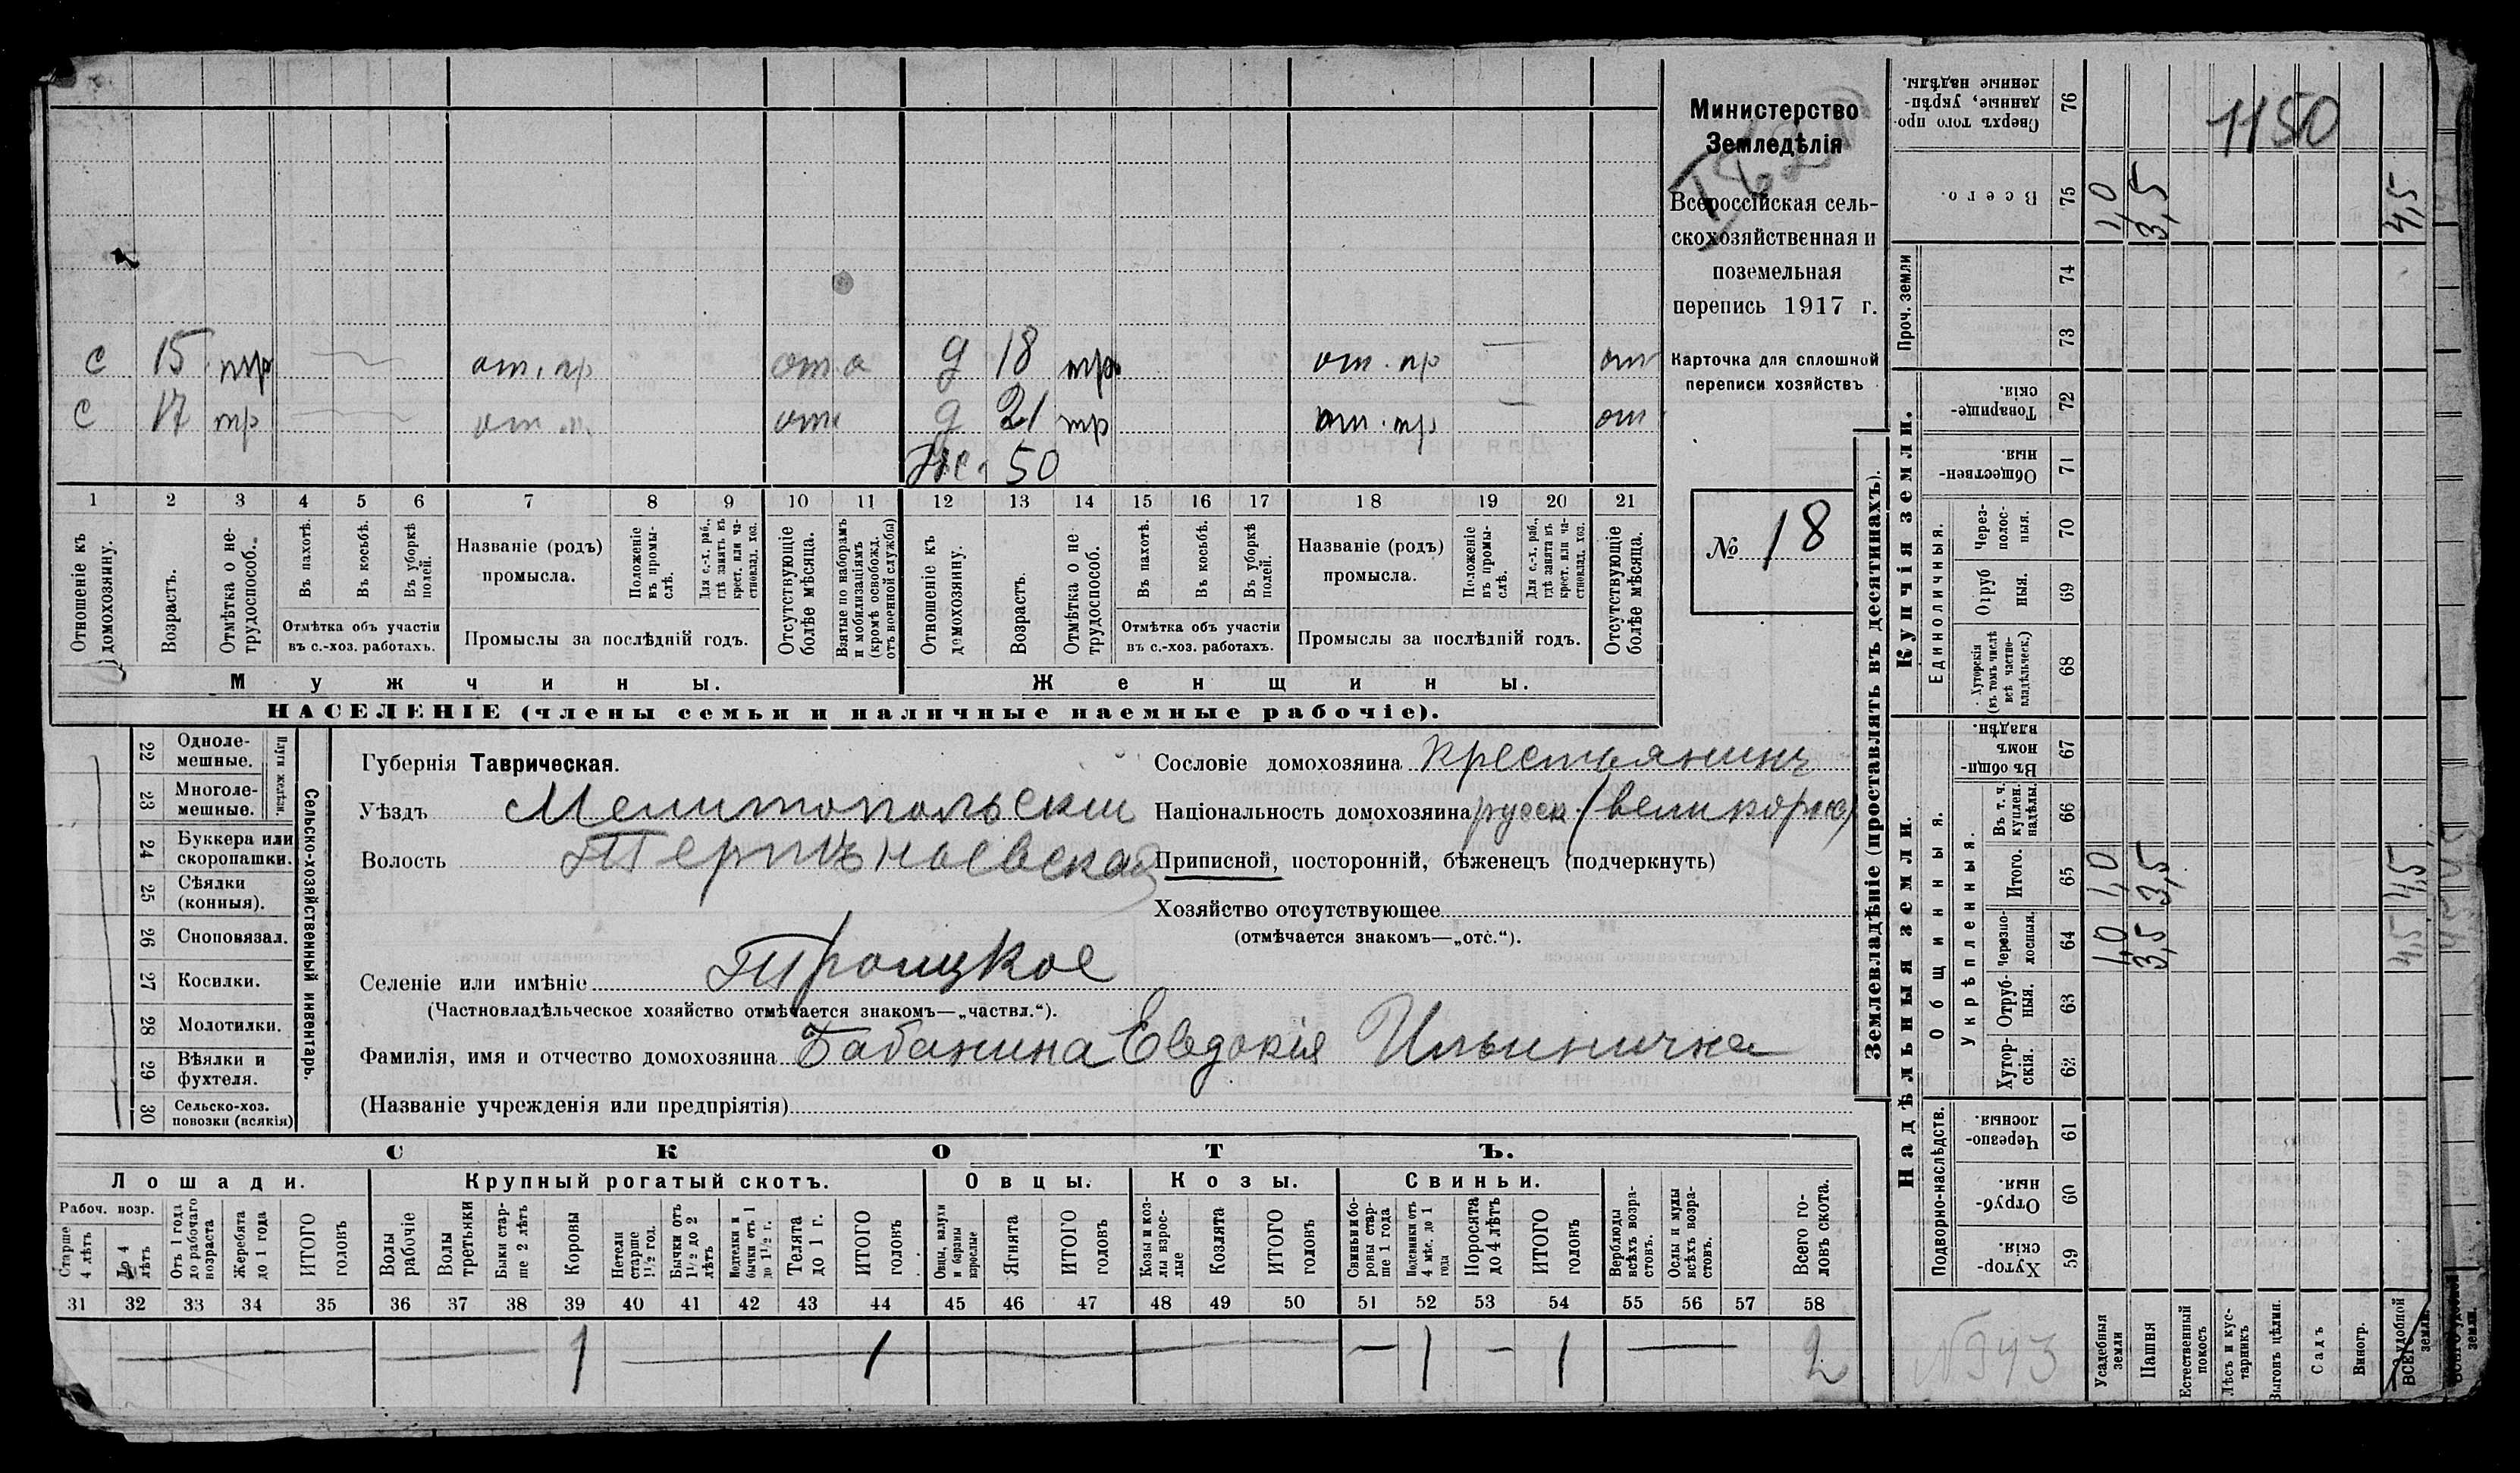 Министерство
Земледѣлія
Всероссійская сель-
скохозяйственная и
поземельная
перепись 1917 г.
Карточка для сплошной
переписи хозяйствъ
№ 18
с 15 тр ат. пр от д 18 тр ат. пр от
с 17 тр от д 21 тр ат. пр от
Же. 50
1 2 3 4 5 6 7 8 9 10 11 12 13 14 15 16 17 18 19 20 21
Отношеніе къ домохозяину.
Возрастъ.
Отмѣтка о не-трудоспособ.
Въ пахотѣ.
Въ косьбѣ.
Въ уборкѣ полей.
Отмѣтка объ участіи
въ с.-хоз. работахъ.
Названіе (родъ)
промысла.
Положеніе въ промы-слѣ.
Для с.-х. раб., гдѣ занятъ въ крест. или ча-стновлад. хоз.
Промыслы за послѣдній годъ.
Отсутствующіе болѣе мѣсяца.
Взятые по наборамъ и мобилизаціямъ (кромѣ освобожд. отъ военной службы)
Отношеніе къ домохозяину.
Возрастъ.
Отмѣтка о не трудоспособ.
Въ пахотѣ.
Въ косьбѣ.
Въ уборкѣ полей.
Отмѣтка объ участіи
въ с.-хоз. работахъ.
Названіе (родъ)
промысла.
Положеніе въ промы-слѣ.
Для с.-х. раб., гдѣ занята въ крест. или ча-стновлад. хоз.
Промыслы за послѣдній годъ.
Отсутствующіе болѣе мѣсяца.
Мужчины. Женщины.
НАСЕЛЕНІЕ (члены семьи и наличные наемные рабочіе).
22 Одноле-мешные.
23 Многоле-мешные.
Плуги желѣзн.
24 Буккера или скоропашки.
25 Сѣялки (конныя).
26 Сноповязал.
27 Косилки.
28 Молотилки.
29 Вѣялки и фухтеля.
30 Сельско-хоз. повозки (всякія)
Сельско-хозяйственный инвентарь.
Губернія Таврическая.
Уѣздъ Мелитопольскій
Волость
Селеніе или имѣніе Троицкое
(Частновладѣльческое хозяйство отмѣчается знакомъ—„частвл.“).
Фамилія, имя и отчество домохозяина Бабанина Евдокія Ильинична
(Названіе учрежденія или предпріятія)
Сословіе домохозяина крестьянинъ
Національность домохозяина русск. (великорос)
Приписной, посторонній, бѣженецъ (подчеркнуть)
Хозяйство отсутствующее
(отмѣчается знакомъ—„отс.“).
СКОТЪ.
Лошади. Крупный рогатый скотъ. Овцы. Козы. Свиньи.
Рабоч. возр.
Старше 4 лѣтъ
До 4 лѣтъ
Отъ 1 года до рабочаго возраста
Жеребята до 1 года
ИТОГО головъ
Волы рабочіе
Волы третьяки
Быки стар-ше 2 лѣтъ
Коровы
Нетели старше 1½ год.
Бычки отъ 1½ до 2 лѣтъ
Подтелки и бычки отъ 1 до 1½ г.
Телята до 1 г.
ИТОГО головъ
Овцы, валухи и бараны взрослые
Ягнята
ИТОГО головъ
Козы и коз-лы взрос-лые
Козлята
ИТОГО головъ
Свиньи и бо-ровы стар-ше 1 года
Подсвинки отъ 4 мѣс. до 1 года
Поросята до 4 лѣтъ
ИТОГО головъ
Верблюды всѣхъ возра-стовъ.
Ослы и мулы всѣхъ возра-стовъ.
Всего го-ловъ скота.
31 32 33 34 35 36 37 38 39 40 41 42 43 44 45 46 47 48 49 50 51 52 53 54 55 56 57 58
— — 1 — 1 — — 1 — 1 — 2
Землевладѣніе (проставлять въ десятинахъ).
Надѣльныя земли. Купчія земли. Проч. земли
Подворно-наслѣдств.
Общинныя.
Укрѣпленныя.
Единоличныя.
59 Хутор-скія.
60 Отруб-ныя.
61 Черезпо-лосныя.
62 Хутор-скія.
63 Отруб-ныя.
64 Черезпо-лосныя. 1,0 3,5 4,5
65 Итого. 1,0 3,5 4,5
66 Въ т. ч. куплен. надѣлы.
67 Въ общи-номъ владѣн.
68 Хуторскія (въ томъ числѣ всѣ частно-владѣльческ.)
69 Отруб ныя.
70 Через-полос-ныя.
71 Обществен-ныя.
72 Товарище-скія.
73
74
75 Всего. 1,0 3,5 4,5
76 Сверхъ того про-данные, укрѣп-ленные надѣлы.
1150
Усадебныя земли
Пашня
Естественный покосъ
Лѣсъ и кус-тарникъ
Выгонъ цѣлин.
Садъ
Виногр.
ВСЕГО удобной земли
№943